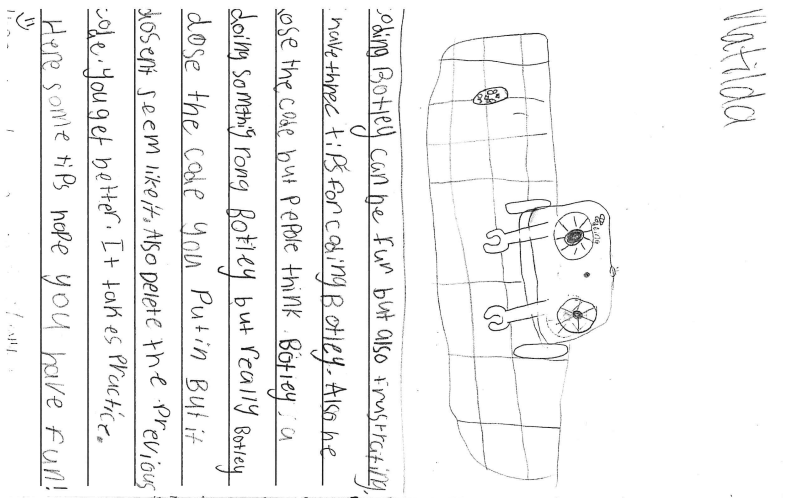 Matilda
oding Botley can be fun but also frustrating.
have three tips for coding Botley. Also he
ose the code but pepole think. Botley is a
doing somthing rong Botley but really Botley
dose the code you Put in But it
dosent seem like it. Also Delete the Previous
code. You get better. It takes Practice.
Here some tips hope you have fun!